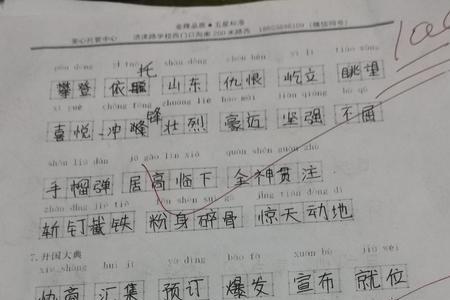 金牌品质★五星标准
安心托管中心 济渎路学校西门口向南200米路西
pān dēng yī tuō shān dōng chóu hèn yì lì tiào wàng
托
攀登 依 山东 仇恨 屹立 眺望
xǐ yuè chōng fēng zhuàng liè háo mài jiān qiáng bù qū
锋
喜悦 冲 壮烈 豪迈 坚强 不屈
shǒu liú dàn jū gāo lín xià quán shén guàn zhù
手榴弹 居高临下 全神贯注
斩钉截铁 粉身碎骨 惊天动地
7.开国大典
xié shāng huì jí yù dìng bào fā xuān bù jiù wèi
协商 汇集 预订 爆发 宣布 就位